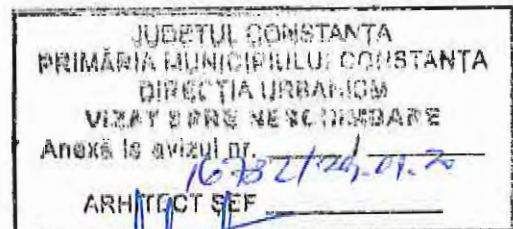 JUDEȚUL CONSTANȚA
PRIMĂRIA MUNICIPIULUI CONSTANȚA
DIRECȚIA URBANISM
VIZAT SPRE NESCHIMBARE
Anexă la avizul nr.
ARHITECT ȘEF